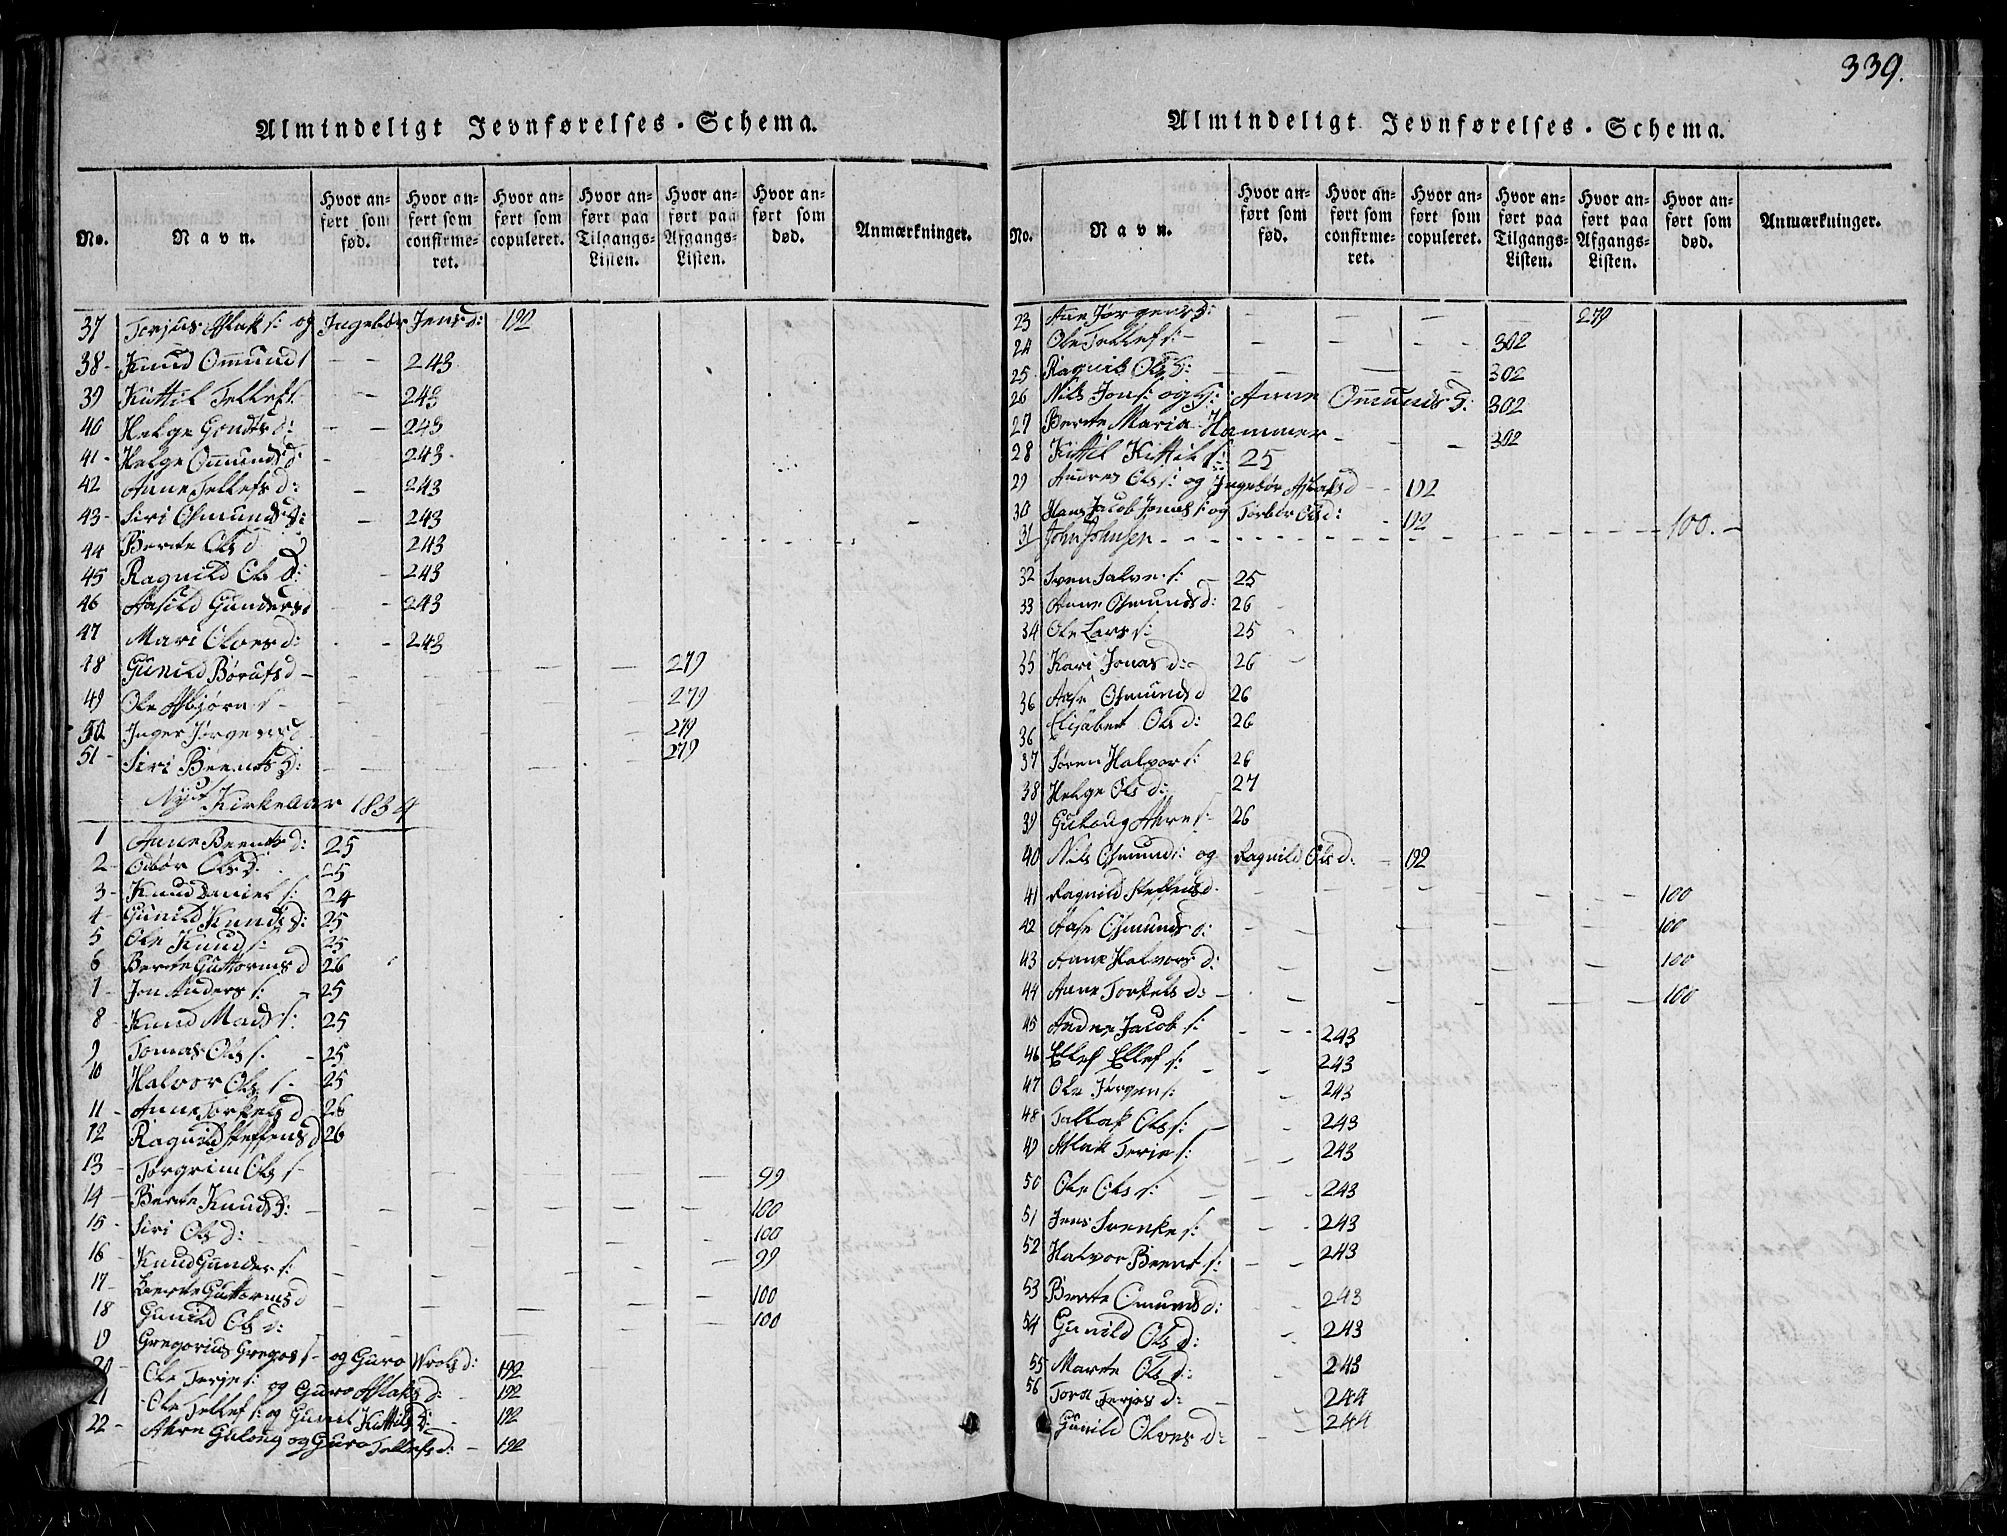 339.
Almindeligt Jevnførelses-Schema.
No. Navn. Hvor anført som fød. Hvor anført som confirmeret. Hvor anført som copuleret. Hvor anført paa Tilgangs-Listen. Hvor anført paa Afgangs-Listen. Hvor anført som død. Anmærkninger.
37 Terjus Aslak s: og Ingebør Jens d: 192
38 - Knud Omund s - - 243
39 Kittil Tellef s. - - 243
40 Helge Gondts d: - - 243
41 - Helge Omunds d: - 243
42 Anne Tellefs d: - 243
43 - Siri Osmunds d: - 243
44 Berte Ols d 243
45 Ragnild Ols d: - 243
46 Aasild Gunders d - - 243
47 Mari Olves d: - - 243
48 Gunild Børufs d - - - - - 279
49 Ole Asbjørn s - - - - - - 279
50 Inger Jørgens d - 279
51 - Siri Beents d: - - - - - 279
Nyt Kirkeaar 1834
1 Anne Beents d: 25
2 - Odbør Ols d: 25
3 - Knud Daniel s: 24
4 - Gunild Knuds d: 25
5 Ole Knud s: 25
6 Berte Guttorms d 26
7 - Jon Anders s: - 25
8 Knud Mads s: 25
9 Tomas Ols s: - 25
10 Halvor Ols s - 25
11 - Anne Torkels d 26
12 Ragnild Steffens d 26
13 - Torgrim Ols s - - 99
14 - Berte Knuds d: - - - - - 100
15 - Siri Ols d: - - - 100
16 - Knud Gunder s: - - - - - 99
17 - Berte Guttorms d - - 100
18 Gunild Ols d: - - - - - 100
19 Gregorius Gregos s - og Guro Wrols d: 192
20 Ole Terje s: og Guro Aslaks d: - 192
21 Ole Tellef s: og Gunil Kittils d: - 192
22 - Akre Gulong og Guro Tellefs d: - 192
Almindeligt Jevnførelses-Schema.
No. Navn. Hvor anført som fød. Hvor anført som confirmeret. Hvor anført som copuleret. Hvor anført paa Tilgangs-Listen. Hvor anført paa Afgangs-Listen. Hvor anført som død. Anmærkninger.
23 Ane Jørgens d: - - - - 279
24 Ole Tellef s: - - - - - 302
25 Ragnil Ols d: - - - - 302
26 Nils Jon s: og H: Anne Omunds d: 302
27 Berte Maria Hammer - - - 302
28 Kittil Kittil s: 25
29 Andres Ols s: og Ingebør Aslaks d - - 192
30 Hans Jacob Jonas s: og Torbør Ols d: - 192
31 John Johnsen - - - - - - 100. -
32 Sven Salve s: - 25
33 Anne Osmunds d: 26
34 Ole Lars s: 25
35 Kari Jonas d: - 26
36 Aase Osmunds d 26
36 Elisabet Ols d: 26
37 Søren Halvor s: 26
38 Helge Ols d: 27
39 Gulong Akre s: 26
40 Nils Osmund s: og Ragnild Ols d: - 192
41 Ragnild Steffens d. - - - - - 100
42 Aase Osmunds d: - - - - - 100
43 Anne Halvors d: - - - - - 100
44 Anne Torkels d: - - - - - - 100
45 Andres Jacob s: - - - 243
46 Ellef Ellef s: - - 243
47 Ole Jørgen s: - 243
48 Tallak Ols s: - - 243
49 Aslak Terje s: 243
50 Ole Ols s: - - - 243
51 Jens Svenke s: - - 243
52 Halvor Beent s: - - 243
53 Berte Omunds d: - 243
54 Gunild Ols d: - 243
55 Marte Ols d: 243
56 Tora Terjes d: - 244
Gunild Olves d: - - 244